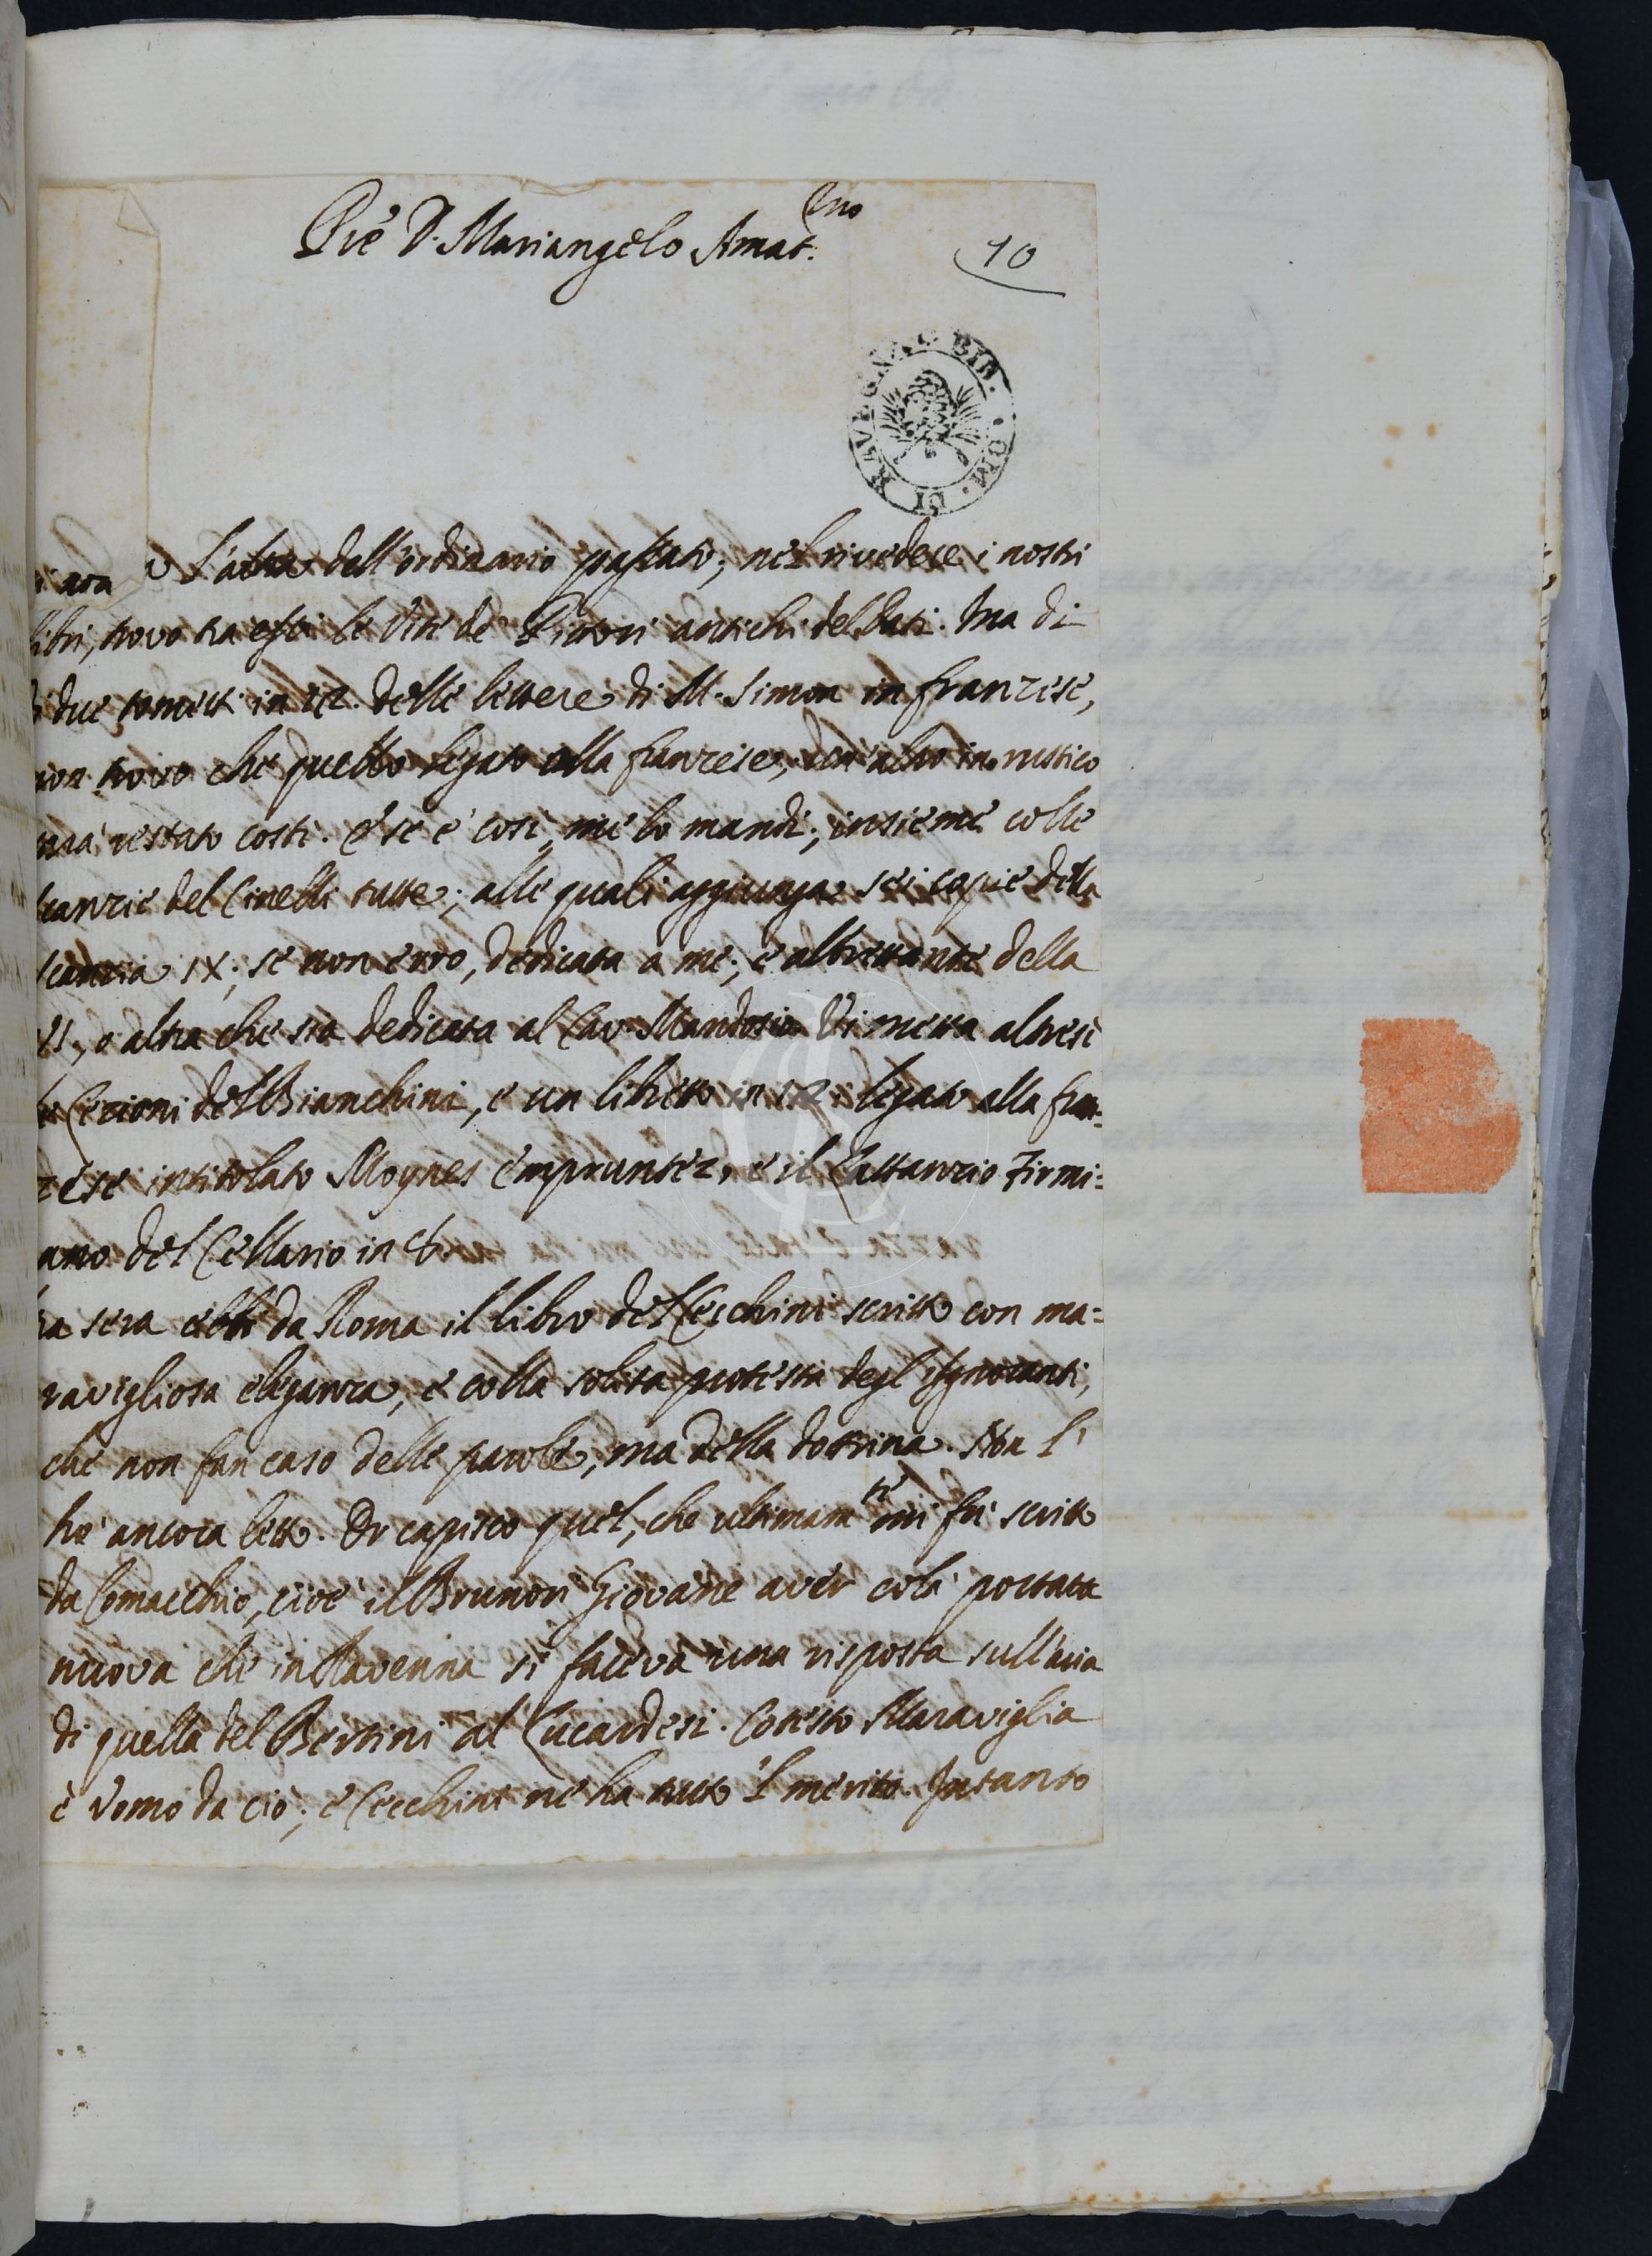 Prê D. Mariangelo Amat.mo
10
BIB. COM. DI
non L'altra dell'ordinario passato; nel rivedere i nostri
libri, trovo tra essi le Vite de' Pittori antichi del Dati. Ma di
due tometti in 12. delle lettere di M. Simon in franzese,
non trovo che quello legato alla franzese; l'altro in rustico
restato costì. e se è così, me lo mandi; insieme colle
scanzie del Cinelli tutte; alle quali aggiunga sei copie della
scanzia IX; se non erro, dedicata a me; e altrettante della
VI, o altra che sia dedicata al Cav. Mandosio. Vi metta altresì
le Lezioni del Bianchini, e un libretto in 12. legato alla fran=
zese intitolato Moynes empruntez, e il Lattanzio Firmi=
ano del Cellario in 8.
sera ebbi da Roma il libro del Cecchini scritto con ma=
ravigliosa eleganza, e colla solita protesta degl'Ignoranti,
che non fan caso delle parole, ma della dottrina. Non l'
hò ancora letto. Or capisco quel, che ultimamte mi fù scritto
da Comacchio, cioè il Brunori Giovane aver colà portata
nuova che in Ravenna si faceva una risposta sull'aria
di quella del Bertini al Lucardesi. Cotesto Maraviglia
è Uomo da ciò; e Cecchini ne ha tutto 'l merito. Intanto